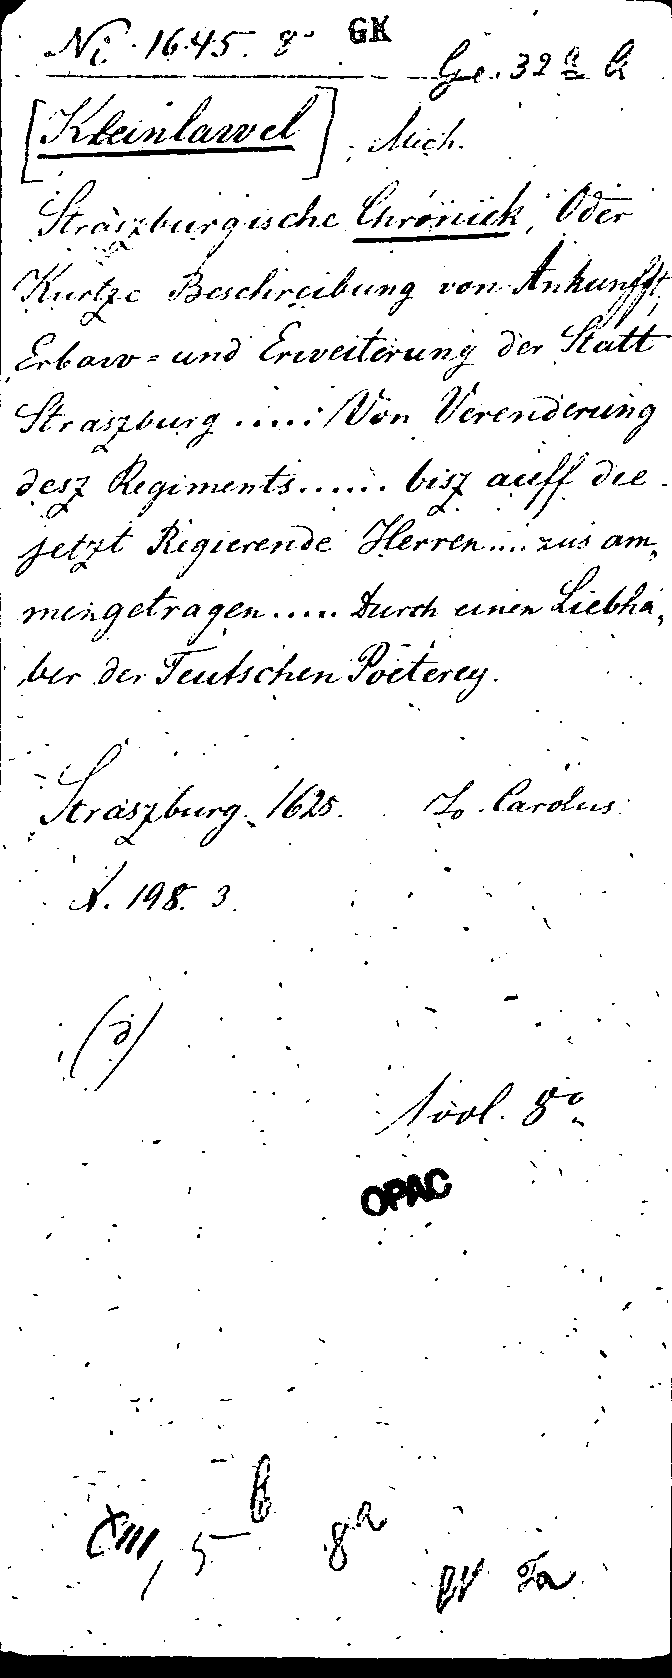 Ni 1645. 8° GK
Ge. 32
[Kleinlawel], Mich.
Straszburgische Chronick, Oder
Kurtze Beschreibung von Ankunfft,
Erbaw= und Erweiterung der Statt
Straszburg ..... Von Verenderung
desz Regiments ...... bisz auff die
jetzt Regierende Herren .... zus am,
mengetragen ..... Durch einen Liebha,
ber der Teutschen Poëterey.
Straszburg. 1625. Jo. Carolus
A. 198. 3.
(d)
1 vol. 8°
OPAC
XIII, 5 b 8a